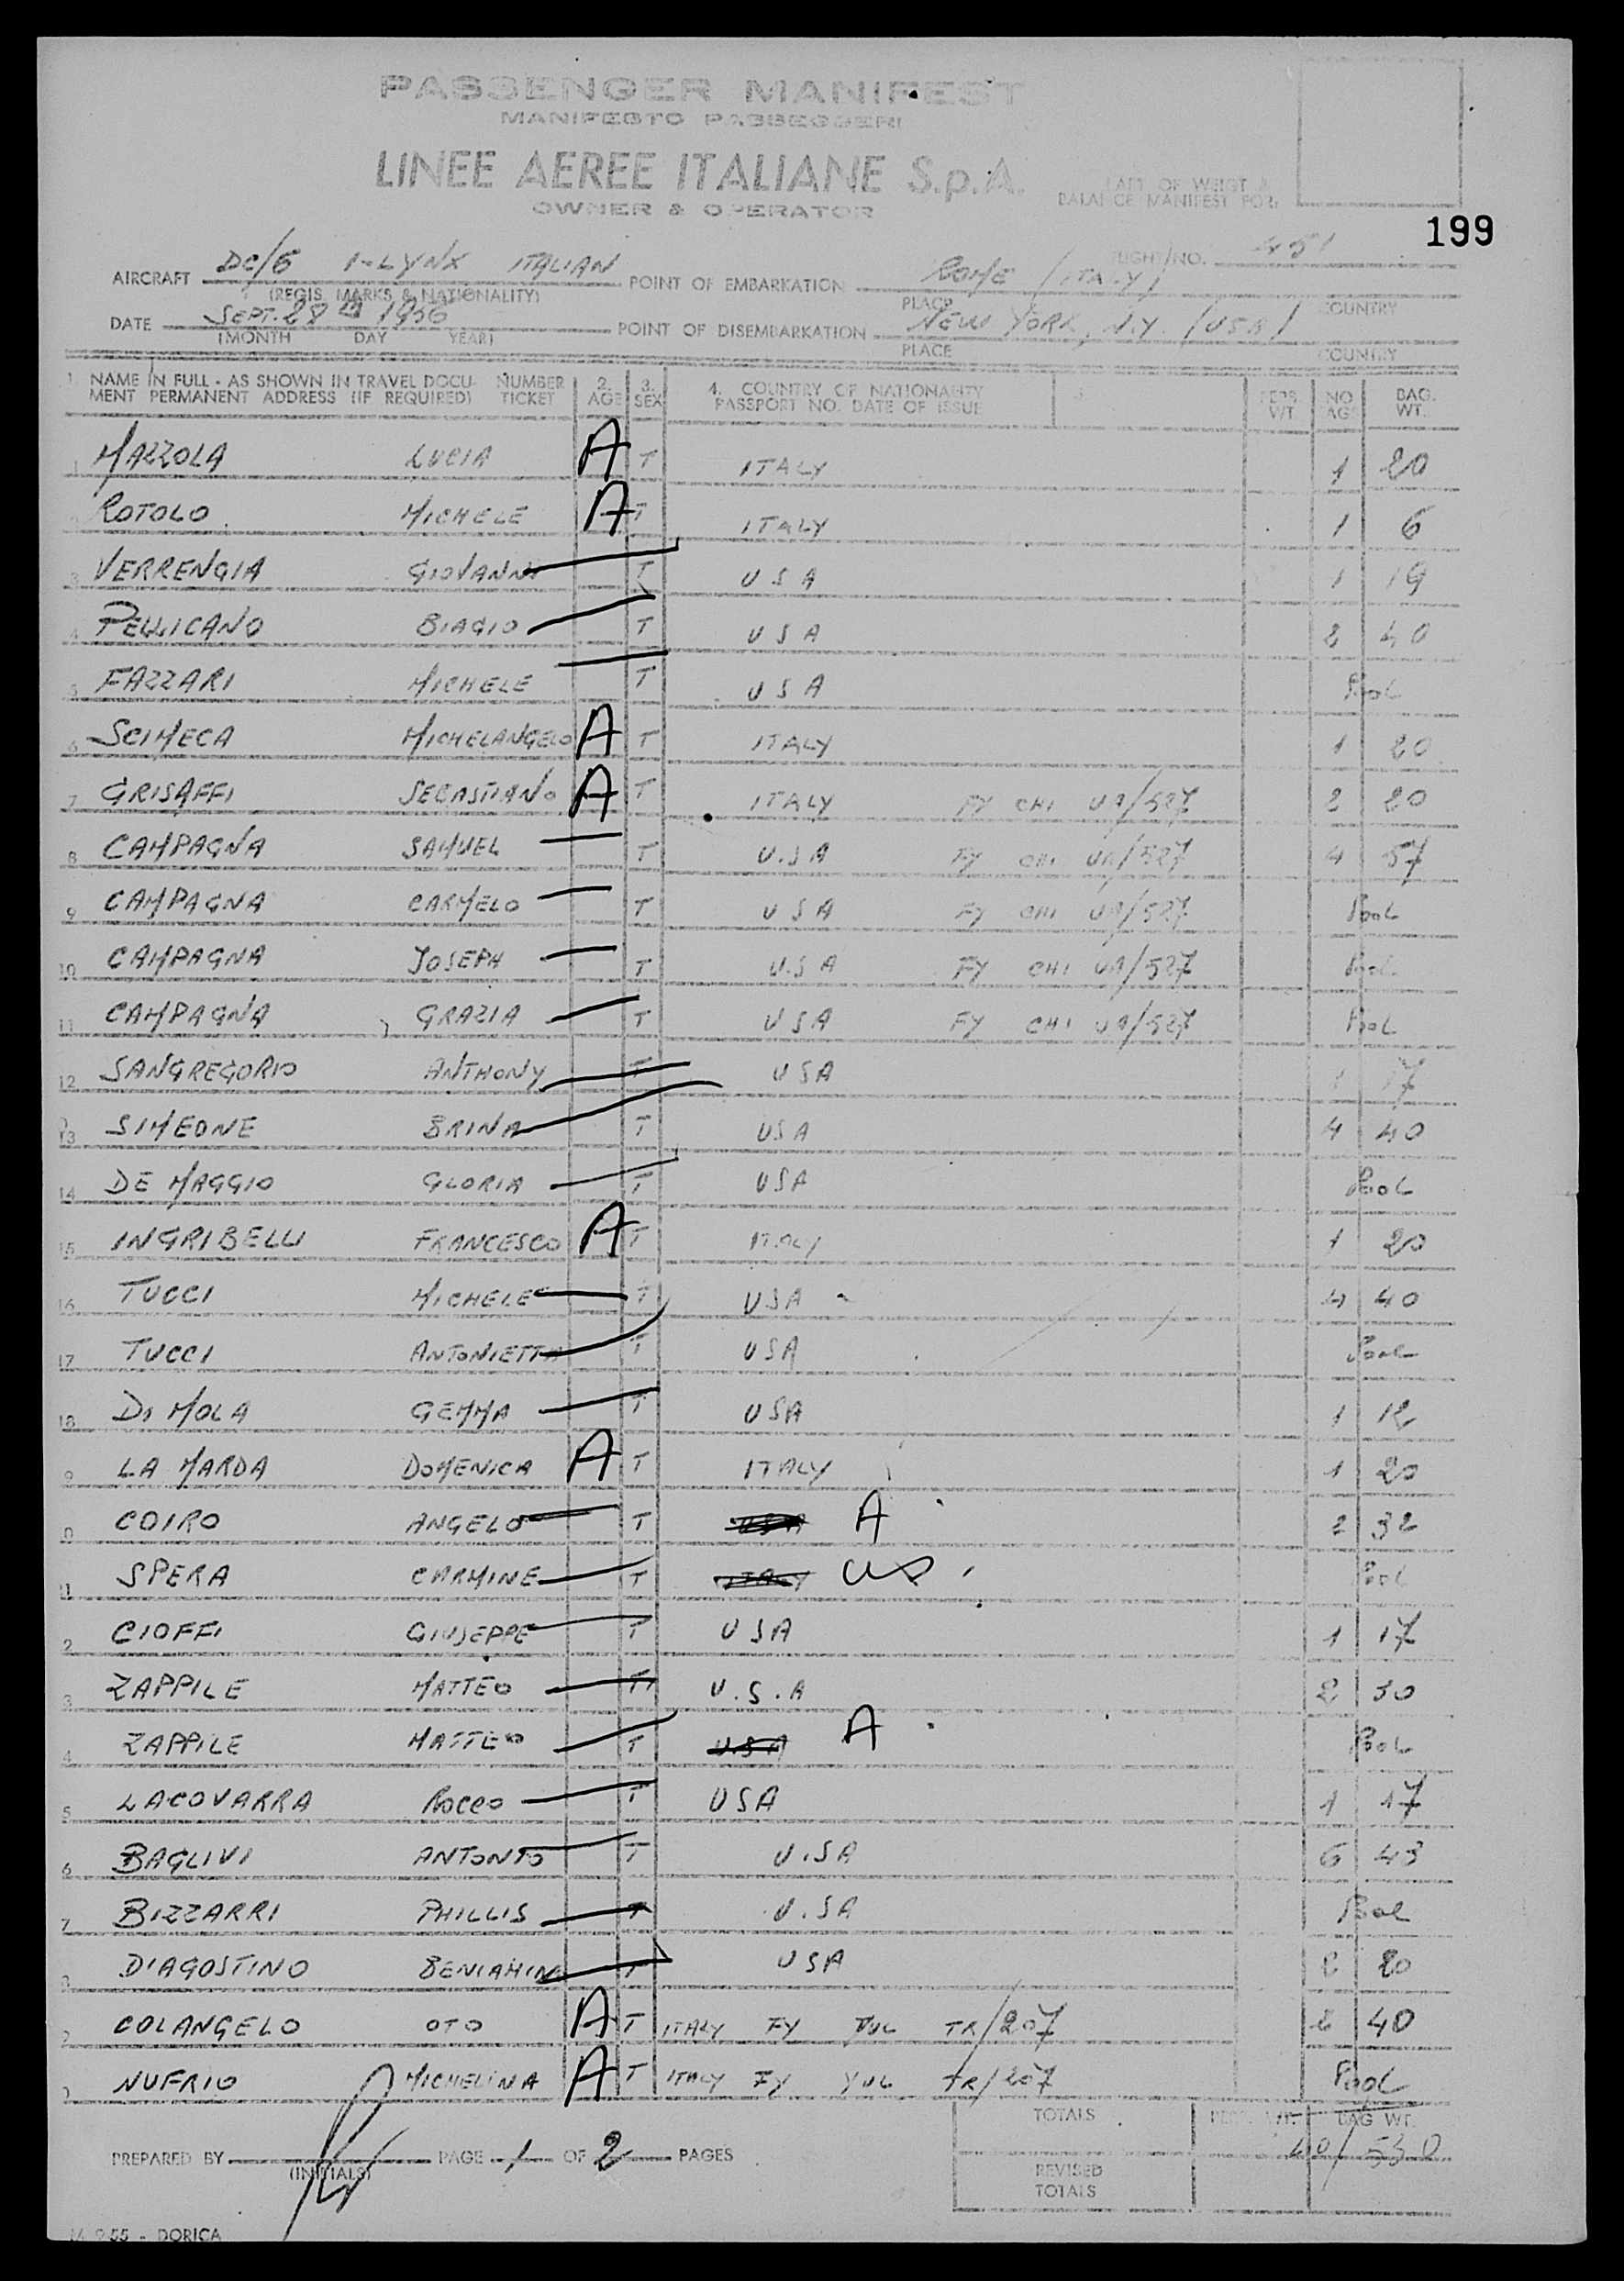 PASSENGER MANIFEST
MANIFESTO PASSEGGERI
LINEE AEREE ITALIANE S.p.A.
OWNER & OPERATOR
PART OF WEIGT &
BALANCE MANIFEST FOR:
199
FLIGHT/NO. 451
AIRCRAFT DC/6 I-LYNX ITALIAN POINT OF EMBARKATION ROME (ITALY)
(REGIS MARKS & NATIONALITY) PLACE COUNTRY
DATE SEPT. 28th 1956 POINT OF DISEMBARKATION NEW YORK, N.Y. (USA)
(MONTH DAY YEAR) PLACE COUNTRY
1. NAME IN FULL - AS SHOWN IN TRAVEL DOCU- NUMBER 2. 3. 4. COUNTRY OF NATIONALITY 5. PERS NO BAG.
MENT PERMANENT ADDRESS (IF REQUIRED) TICKET AGE SEX PASSPORT NO. DATE OF ISSUE WT. BAGS WT.
1 MAZZOLA LUCIA A T ITALY 1 20
ROTOLO MICHELE A T ITALY 1 6
3 VERRENGIA GIOVANNI T USA 1 19
4 PELLICANO BIAGIO T USA 2 40
5 FAZZARI MICHELE T USA Pool
6 SCIMECA MICHELANGELO A T ITALY 1 20
7 GRISAFFI SEBASTIANO A T ITALY FY CHI UA/527 2 20
8 CAMPAGNA SAMUEL T U.S.A FY CHI UA/527 4 57
9 CAMPAGNA CARMELO T USA FY CHI UA/527 Pool
10 CAMPAGNA JOSEPH T U.S.A FY CHI UA/527 Pool
11 CAMPAGNA GRAZIA T USA FY CHI UA/527 Pool
12 SANGREGORIO ANTHONY T USA 1 17
13 SIMEONE BRINA T USA 4 40
14 DE MAGGIO GLORIA T USA Pool
15 INGRIBELLI FRANCESCO A T ITALY 1 20
16 TUCCI MICHELE T USA 4 40
17 TUCCI ANTONIETTA T USA Pool
18 DI MOLA GEMMA T USA 1 12
9 LA MARDA DOMENICA A T ITALY 1 20
0 COIRO ANGELO T USA A 2 32
1 SPERA CARMINE T ITALY US Pool
2 CIOFFI GIUSEPPE T USA 1 17
3 ZAPPILE MATTEO T U.S.A 2 30
4 ZAPPILE MATTEO T U.S.A A Pool
5 LACOVARRA ROCCO T USA 1 17
6 BAGLIVI ANTONIO T U.SA 6 43
7 BIZZARRI PHILLIS T U.SA Pool
8 D'AGOSTINO BENIAMINO T USA 2 20
9 COLANGELO OTO A T ITALY FY YUL TR/207 2 40
0 NUFRIO MICHELINA A T ITALY FY YUL TR/207 Pool
TOTALS PERS. WT. BAG WT.
40/530
PREPARED BY PAGE 1 OF 2 PAGES
(INITIALS)
REVISED
TOTALS
M. 9-55 - DORICA